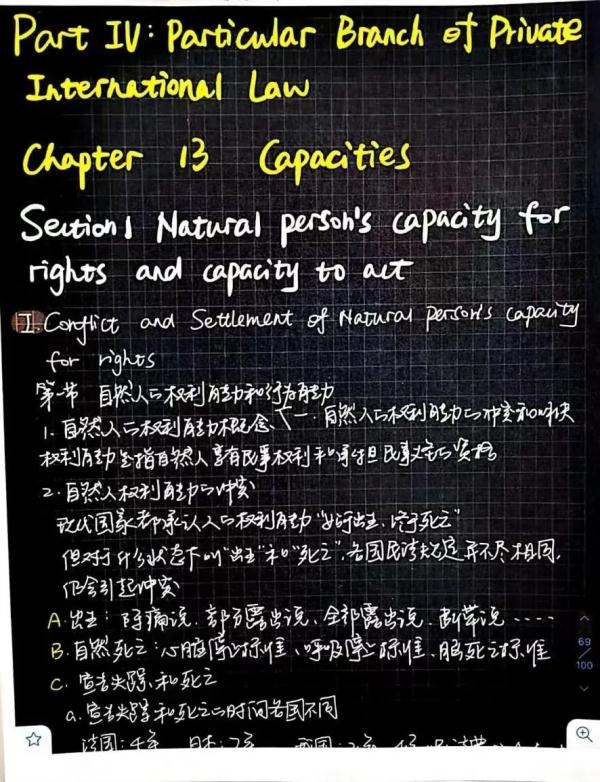 Part IV: Particular Branch of Private
International Law
Chapter 13 Capacities
Section 1 Natural person's capacity for
rights and capacity to act
I. Conflict and Settlement of Natural person's capacity
for rights
第一节 自然人的权利能力和行为能力
1. 自然人的权利能力概念、一. 自然人的权利能力的冲突和解决
权利能力是指自然人享有民事权利和承担民事义务的资格
2. 自然人权利能力的冲突
现代国家都承认人的权利能力“始于出生,终于死亡”
但对于什么状态下叫“出生”和“死亡”,各国民法规定并不尽相同,
仍会引起冲突
A. 出生:阵痛说、部分露出说、全部露出说、断带说 ……
B. 自然死亡:心脏停止标准、呼吸停止标准、脑死亡标准
C. 宣告失踪和死亡
a. 宣告失踪和死亡的时间各国不同
法国:4年 日本:7年
69
100